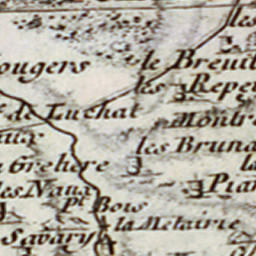 les
ougers
le Breuil
les Repe
de Luchat
Montr
aux
les Bruna
la
Grehere
les Naux
Plan
pt Bois
la Metairie
Savary